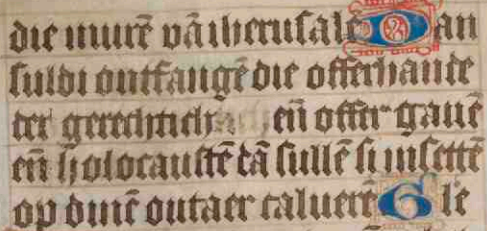 die murē vā iherusalē Dan
suldi ontfangē die offerhande
der gerechticheit eñ offer gauē
eñ holocaustē dā sullē si insettē
op dinē outaer caluerē Gle